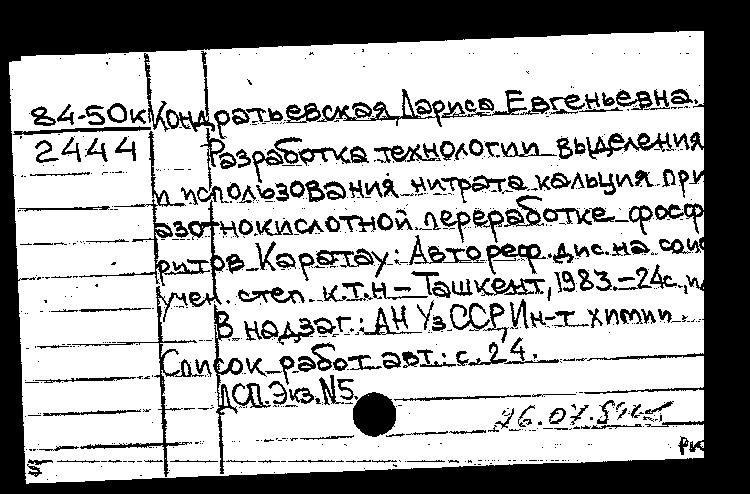 84-50к Кондратьевская, Лариса Евгеньевна.
2444 Разработка технологии выделения
и использования нитрата кальция при
азотнокислотной переработке фосф
ритов Каратау: Автореф. дис. на соис
учен. степ. к.т.н – Ташкент, 1983. – 24с.,
В надзаг.: АН УзССР, Ин-т химии.
Список работ авт.: с. 24.
ДСП. Экз. N5.
26.07.
РК